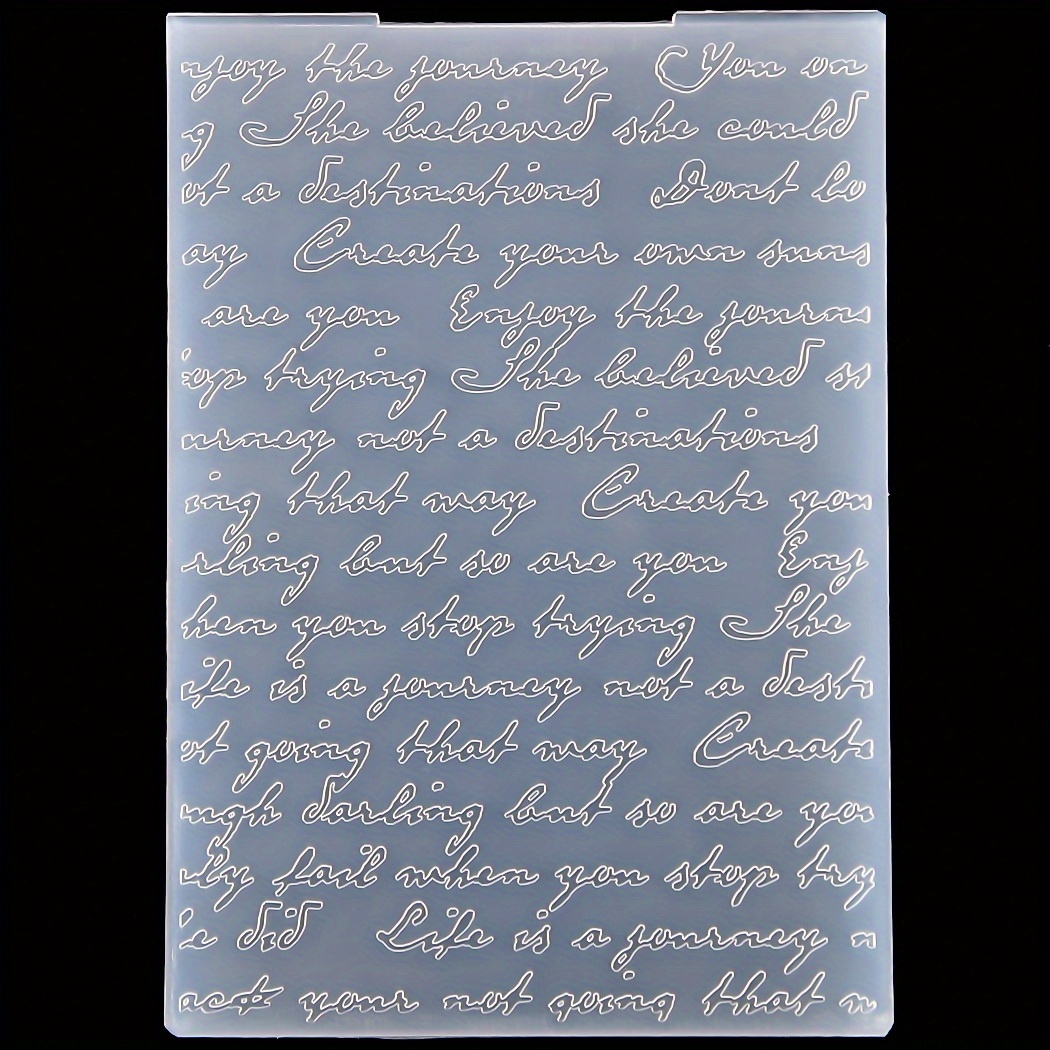 njoy the journey You on
g She believed she could
ot a destinations Dont lo
ay Create your own suns
are you Enjoy the journe
op trying She believed s
urney not a destinations
ing that way Create you
rling but so are you Enj
hen you stop trying She
ife is a journey not a desti
ot going that way Create
ugh darling but so are you
ly fail when you stop try
e did Life is a journey n
act your not going that w